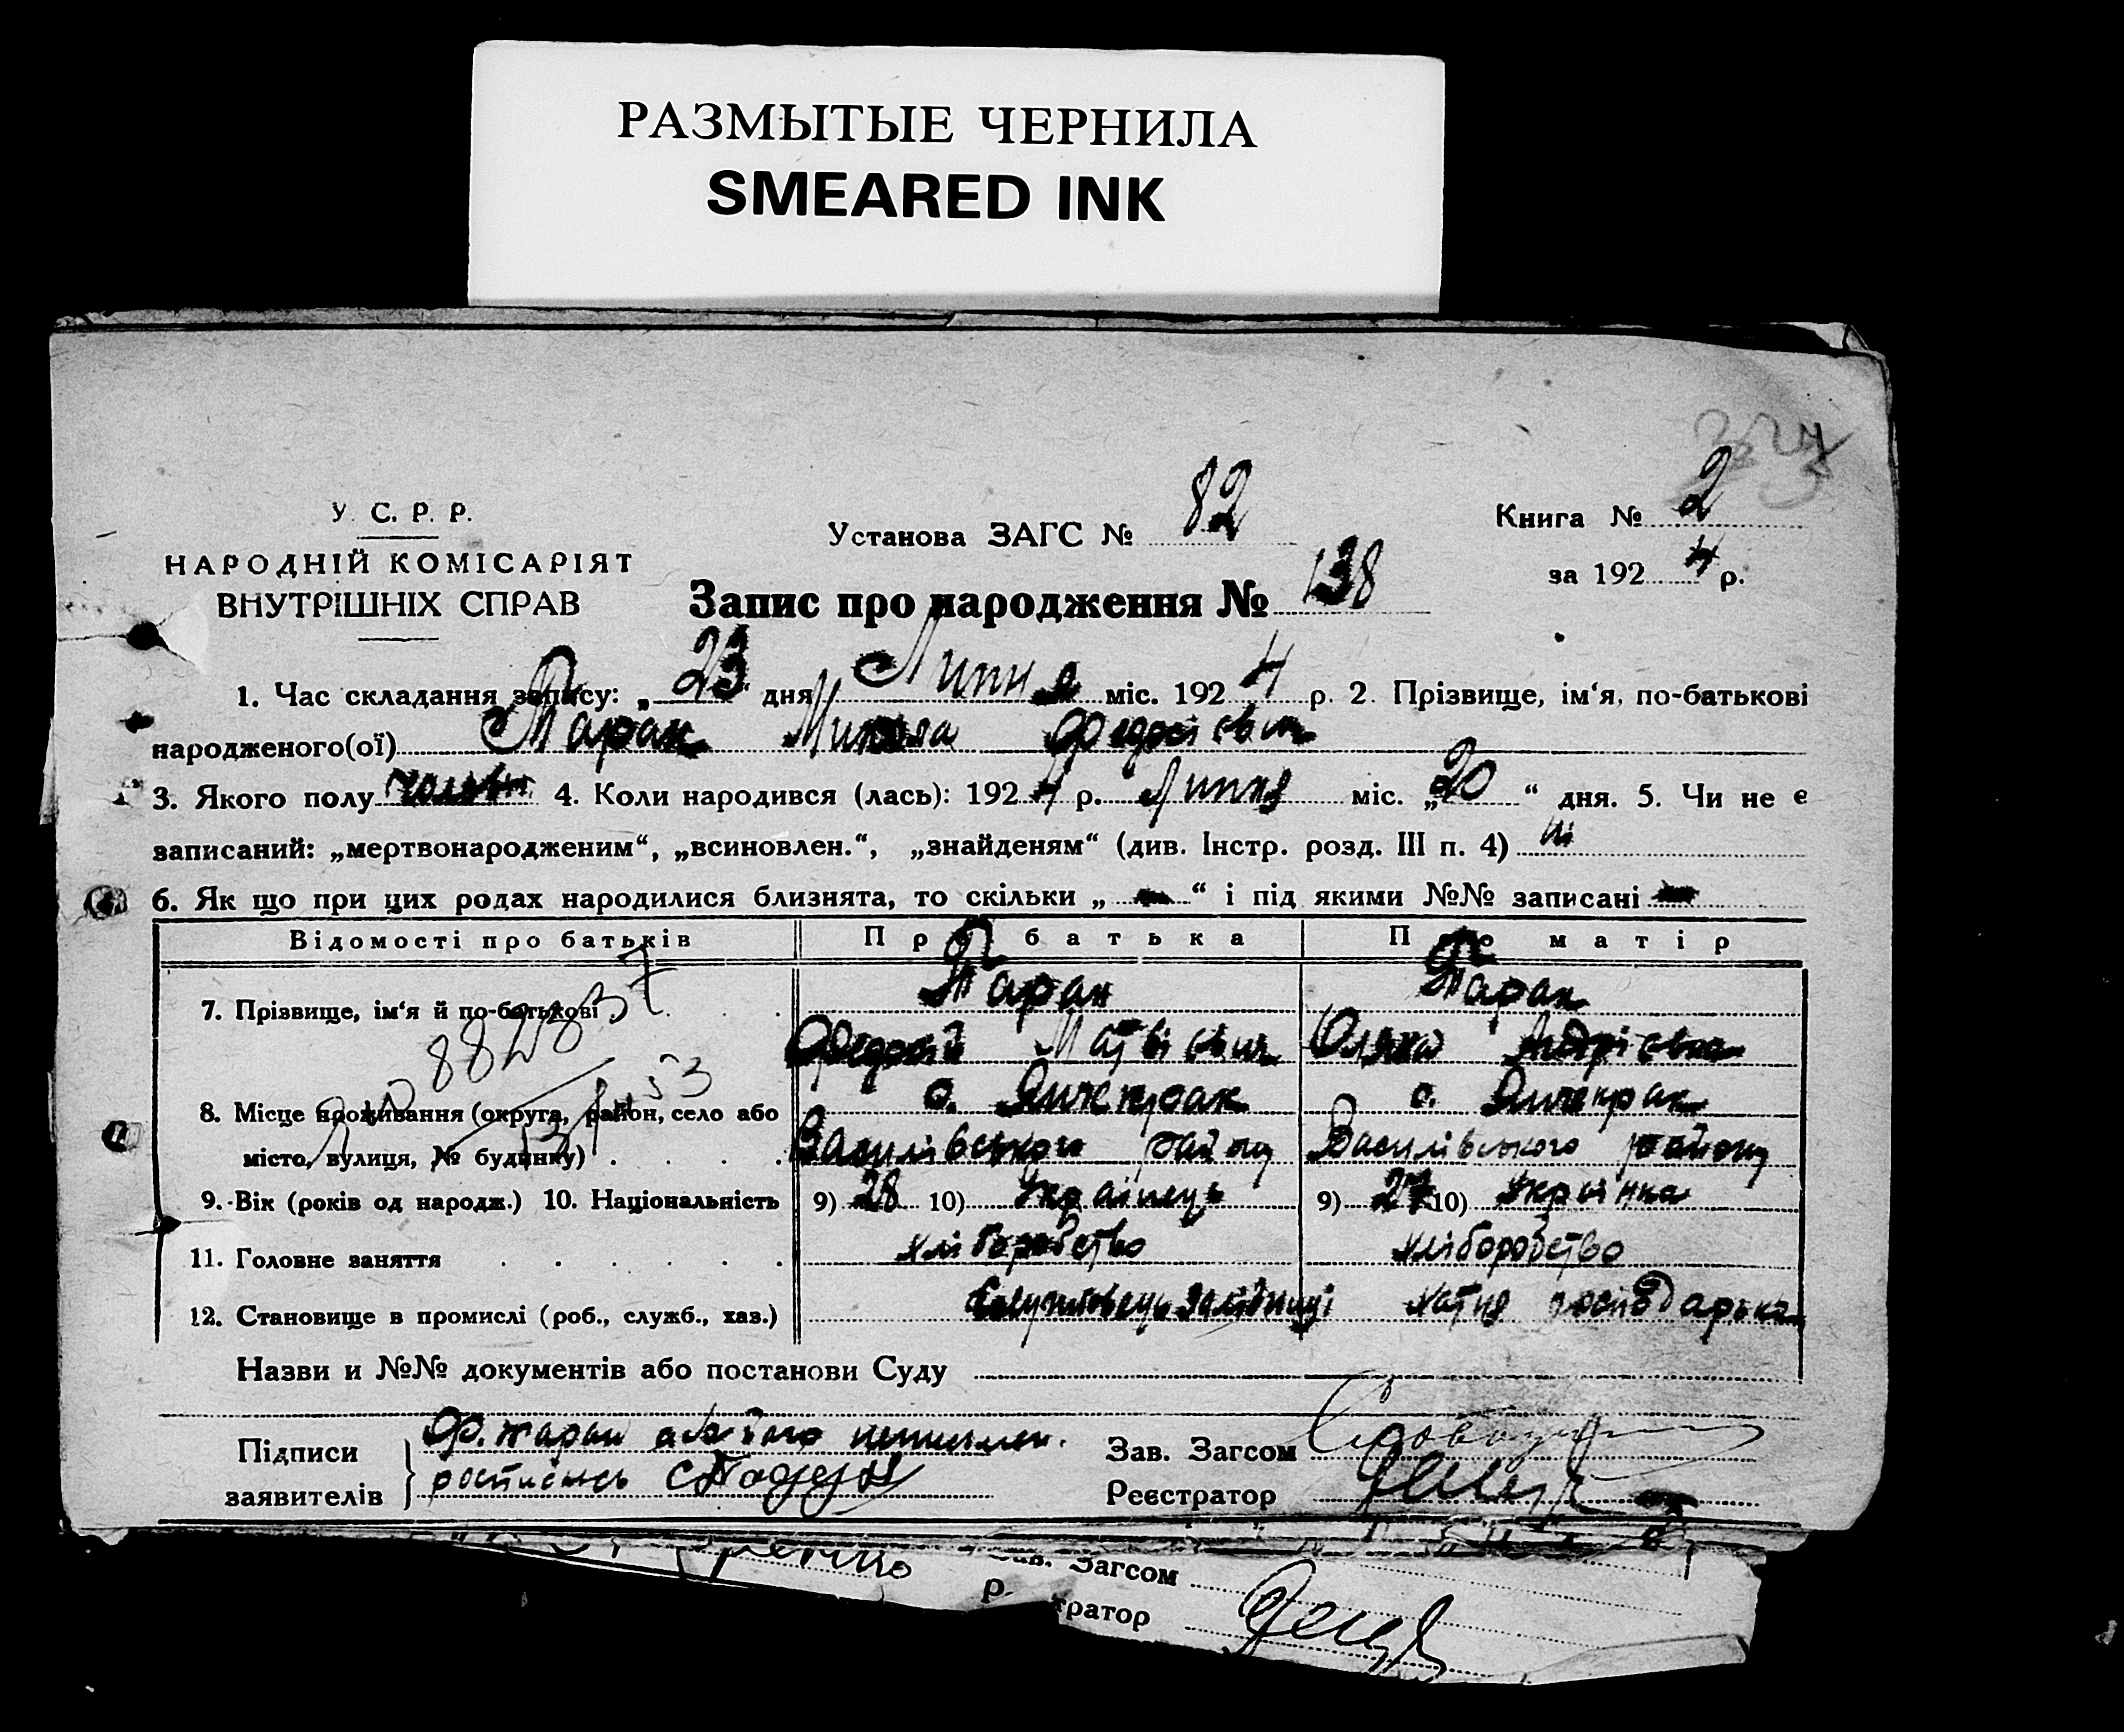 РАЗМЫТЫЕ ЧЕРНИЛА
SMEARED INK
У. С. Р. Р.
НАРОДНІЙ КОМІСАРІЯТ
ВНУТРІШНІХ СПРАВ
Установа ЗАГС № 82
Книга № 2
за 1924 р.
Запис про народження № 138
1. Час складання запису: „23" дня Липня міс. 1924 р. 2. Прізвище, ім‘я, по-батькові
народженого(ої) Таран Микола Федосієвич
3. Якого полу чолов. 4. Коли народився (лась): 1924 р. Липня міс. „20“ дня. 5. Чи не є
записаний: „мертвонародженим“, „всиновлен.“, „знайденям“ (див. Інстр. розд. III п. 4) ні
6. Як що при цих родах народилися близнята, то скільки „ “ і під якими №№ записані
Відомості про батьків Про батька Про матір
7. Прізвище, ім‘я й по-батькові Таран Таран
Федосій Матвієвич Оляна Андрієвна
8. Місце проживання (округа, район, село або с. Янчекрак с. Янчекрак
місто, вулиця, № будинку) Василівського району Василівського району
9. Вік (років од народж.) 10. Національність 9) 28 10) Українець 9) 27 10) Українка
11. Головне заняття хліборобство хліборобство
12. Становище в промислі (роб., служб., хаз.) хатня господарька
Назви и №№ документів або постанови Суду
Підписи Ф. Таран а за його
заявителів росписавсь
Зав. Загсом
Реєстратор
Зав. Загсом
тратор